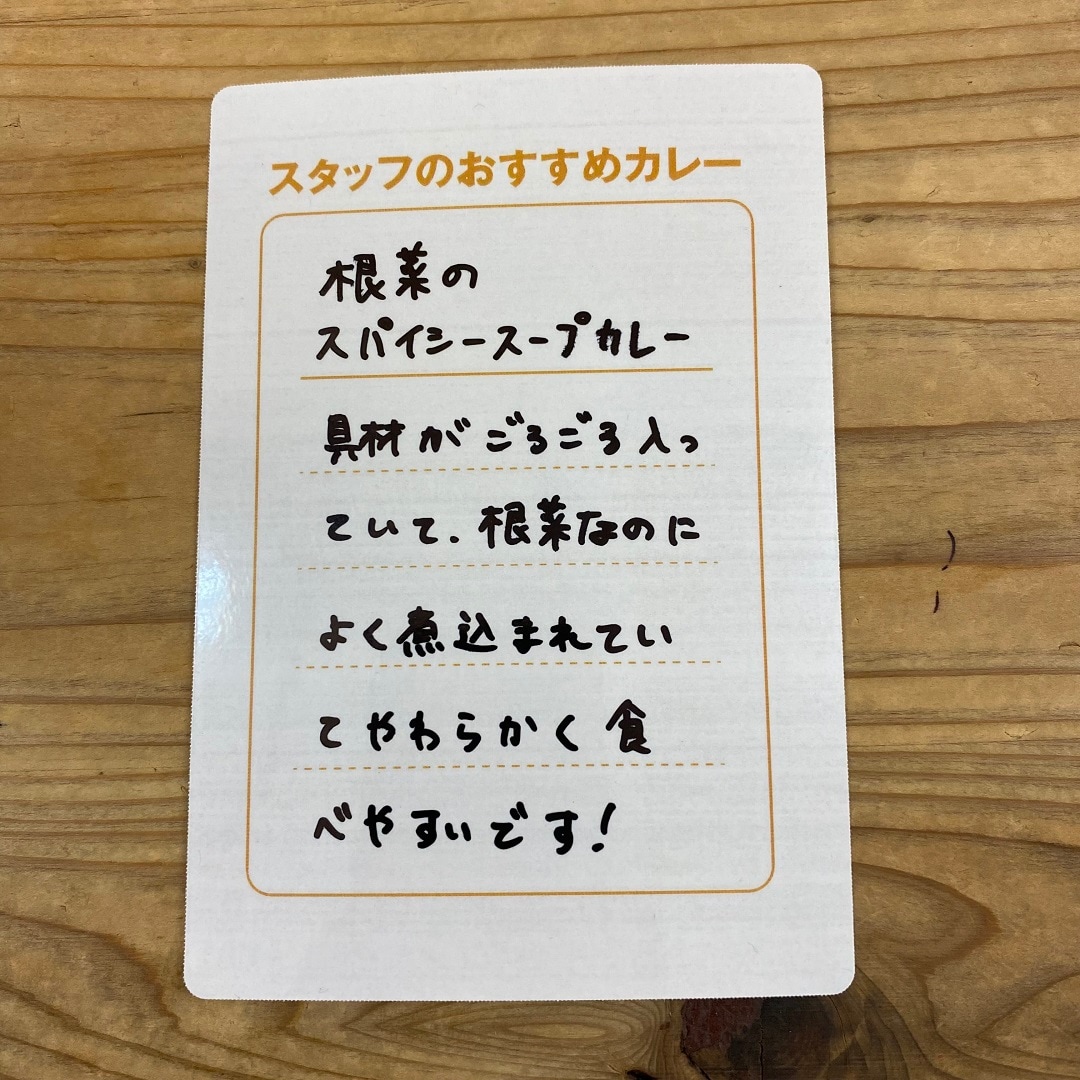 スタッフのおすすめカレー
根菜の
スパイシースープカレー
具材がごろごろ入っ
ていて、根菜なのに
よく煮込まれてい
てやわらかく食
べやすいです!